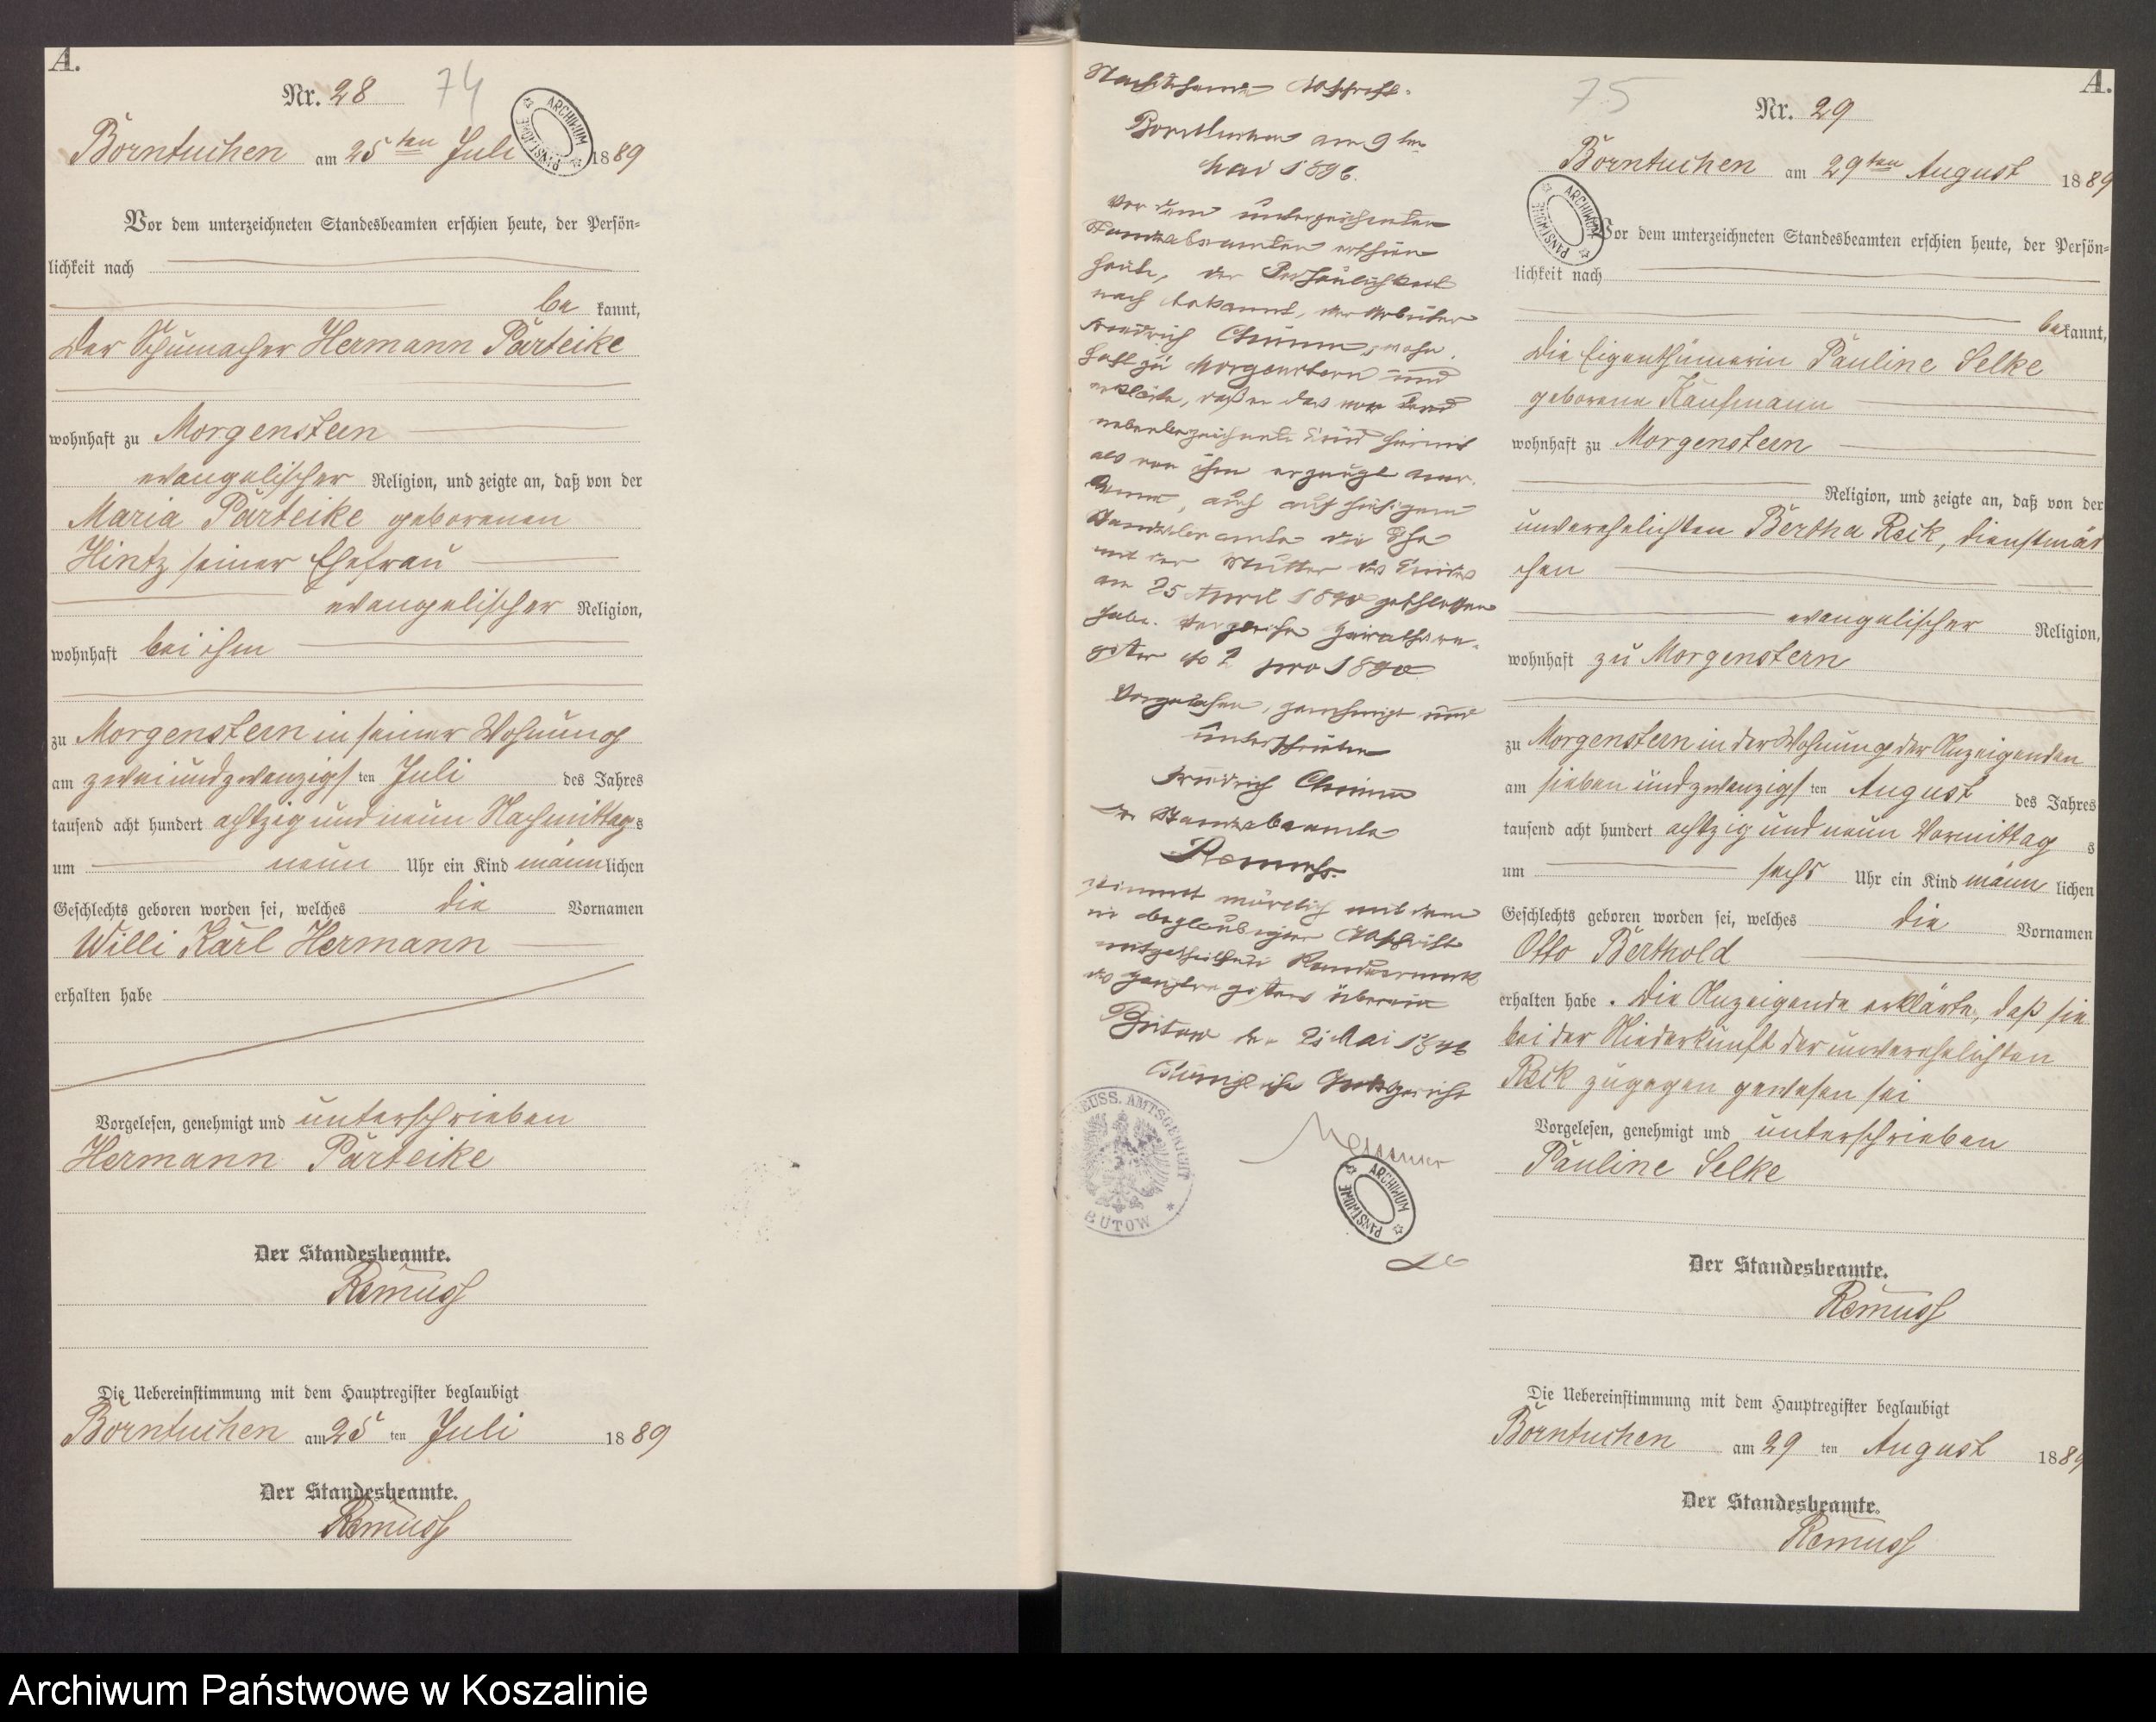 A.
Nr. 28
74
Borntuchen am 25ten Juli 1889
ARCHIWUM PAŃSTWOWE
Vor dem unterzeichneten Standesbeamten erschien heute, der Persön-
lichkeit nach
bekannt,
der Schumacher Hermann Parteike
wohnhaft zu Morgenstern
evangelischer Religion, und zeigte an, daß von der
Maria Parteike geborenen
Hintz seiner Ehefrau
evangelischer Religion,
wohnhaft bei ihm
zu Morgenstern in seiner Wohnung
am zweiundzwanzigsten Juli des Jahres
tausend acht hundert achtzig und neun Nachmittags
um neun Uhr ein Kind männlichen
Geschlechts geboren worden sei, welches die Vornamen
Willi Karl Hermann
erhalten habe
Vorgelesen, genehmigt und unterschrieben
Hermann Parteike
Der Standesbeamte.
Remuss
Die Uebereinstimmung mit dem Hauptregister beglaubigt
Borntuchen am 25 ten Juli 1889
Der Standesbeamte.
Remuss
Abschrift.
Borntuchen am 9ten
Mai 1896.
Vor dem unterzeichneten
Standesbeamten erschien
heute, der Persönlichkeit
nach bekannt, der Arbeiter
Friedrich wohn-
haft zu Morgenstern und
erklärte, daß er das
nebenbezeichnete Kind hiermit
als von ihm erzeugt aner-
kenne, auch auf hiesigem
Standesamte die Ehe
mit der Mutter des Kindes
am 25 April 1890 geschlossen
habe. Vergleiche Heirathsre-
gister No 2 pro 1890
Vorgelesen, genehmigt und
unterschrieben
Friedrich
Der Standesbeamte
Remuss.
Stimmt wörtlich mit dem
in beglaubigter Abschrift
mitgetheilten Randvermerk
des überein
Bütow den Mai
Königliches Amtsgericht
PREUSS. AMTSGERICHT
BÜTOW
ARCHIWUM PAŃSTWOWE
A.
75
Nr. 29
Borntuchen am 29ten August 1889
ARCHIWUM PAŃSTWOWE
Vor dem unterzeichneten Standesbeamten erschien heute, der Persön-
lichkeit nach
bekannt,
die Eigenthümerin Pauline Selke
geborene Kaufmann
wohnhaft zu Morgenstern
Religion, und zeigte an, daß von der
unverehelichten Bertha Reck, Dienstmäd
chen
evangelischer Religion,
wohnhaft zu Morgenstern
zu Morgenstern in der Wohnung der Anzeigenden
am sieben und zwanzigsten August des Jahres
tausend acht hundert achtzig und neun Vormittags
um sechs Uhr ein Kind männlichen
Geschlechts geboren worden sei, welches die Vornamen
Otto Berthold
erhalten habe. Die Anzeigende erklärte, daß sie
bei der Niederkunft der unverehelichten
Reck zugegen gewesen sei
Vorgelesen, genehmigt und unterschrieben
Pauline Selke
Der Standesbeamte.
Remuss
Die Uebereinstimmung mit dem Hauptregister beglaubigt
Borntuchen am 29 ten August 1889
Der Standesbeamte.
Remuss
Archiwum Państwowe w Koszalinie